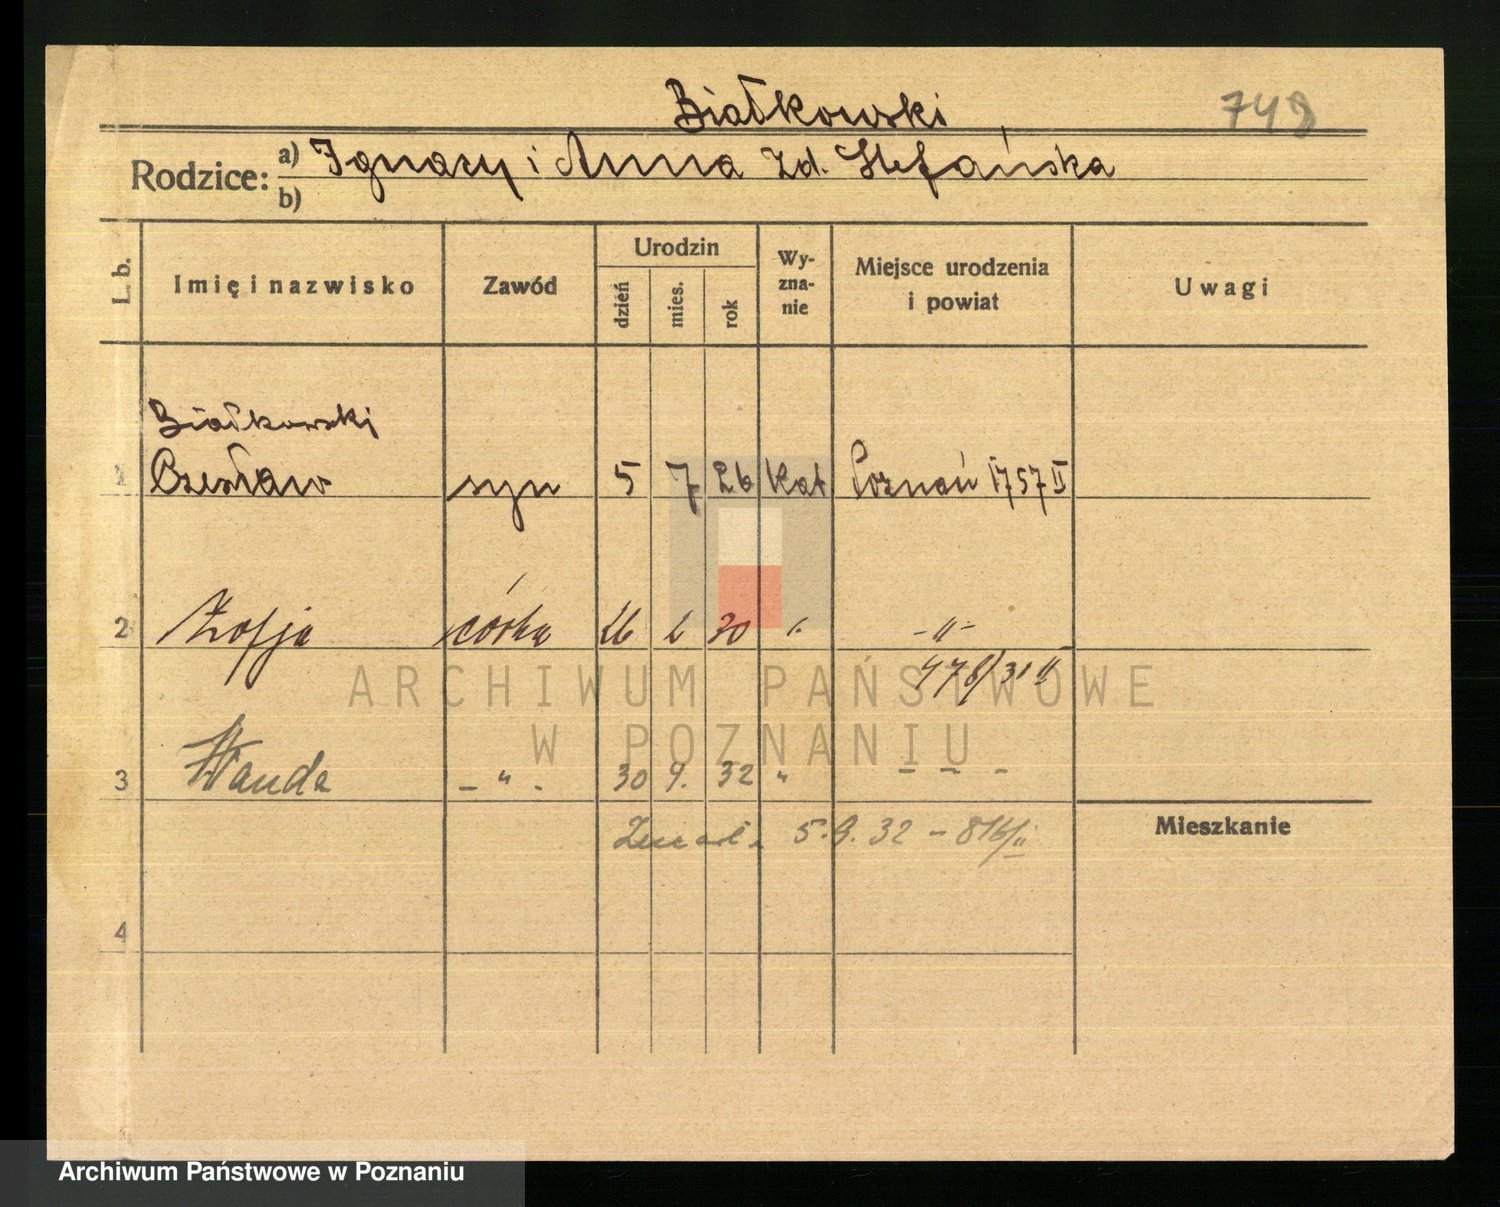 Białkowski
748
Rodzice: a) Ignacy i Anna zd. Stefańska
b)
L. b. Imię i nazwisko Zawód Urodzin dzień mies. rok Wy-zna-nie Miejsce urodzenia i powiat Uwagi
Białkowski
1 Czesław syn 5 7 26 kat Poznań 1757 II
2 Zofja córka 26 30 -"-
478/31 II
3 Wanda - " - 30 9. 32 " - - -
Zmarła 5.9.32 - 816/II
Mieszkanie
4
ARCHIWUM PAŃSTWOWE
W POZNANIU
Archiwum Państwowe w Poznaniu